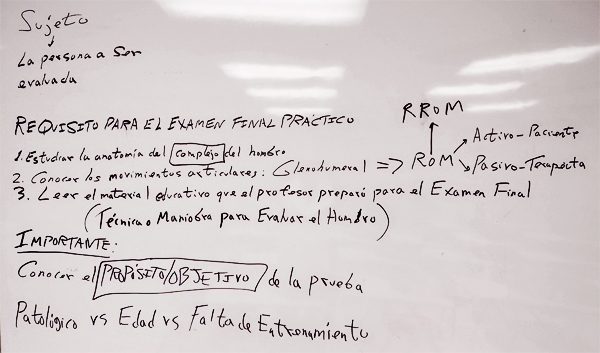 Sujeto
↓
La persona a ser
evaluada
REQUISITO PARA EL EXAMEN FINAL PRÁCTICO
1. Estudiar la anatomía del complejo del hombro
2. Conocer los movimientos articulares: Glenohumeral => ROM
RROM
Activo-Paciente
Pasivo-Terapeuta
3. Leer el material educativo que el profesor preparó para el Examen Final
(Técnica o Maniobra para Evaluar el Hombro)
IMPORTANTE:
Conocer el PROPÓSITO/OBJETIVO de la prueba
Patológico vs Edad vs Falta de Entrenamiento